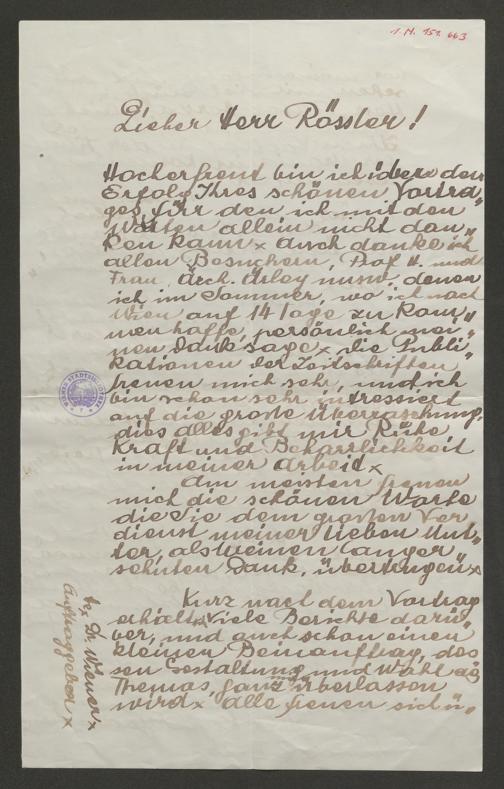 I.N. 151.663
Lieber Herr Rössler!
Hocherfreut bin ich über den
Erfolg Ihres schönen Vorträ„
ges für den ich mit den
Worten allein nicht dan„
ken kann x Auch danke ich
allen Besuchern, Prof H. und
Frau, Arch. usw. denen
ich im Sommer, wo ich nach
Wien auf 14 Tage zu kom„
men hoffe, persönlich mei„
nen Dank sage x die Publi„
kationen der Zeitschriften
freuen mich sehr, und ich
bin schon sehr intressiert
auf die große Überraschung,
dies alles gibt mir Ruhe
Kraft und Beharrlichkeit
in meiner Arbeit x
Am meisten freuen
mich die schönen Worte
die Sie dem großen Ver
dienst meiner lieben Mut„
ter, als meinen langer„
sehnten Dank, übertrugen x
Kurz nach dem Vortrag
erhielt x viele Berichte darü„
ber, und auch schon einen
kleinen Beinauftrag, des
sen Gestaltung und Wahl des
Themas, ganz mir überlassen
wird x alle freuen sich ü„
Dr. Wiener x
Auftraggeber x